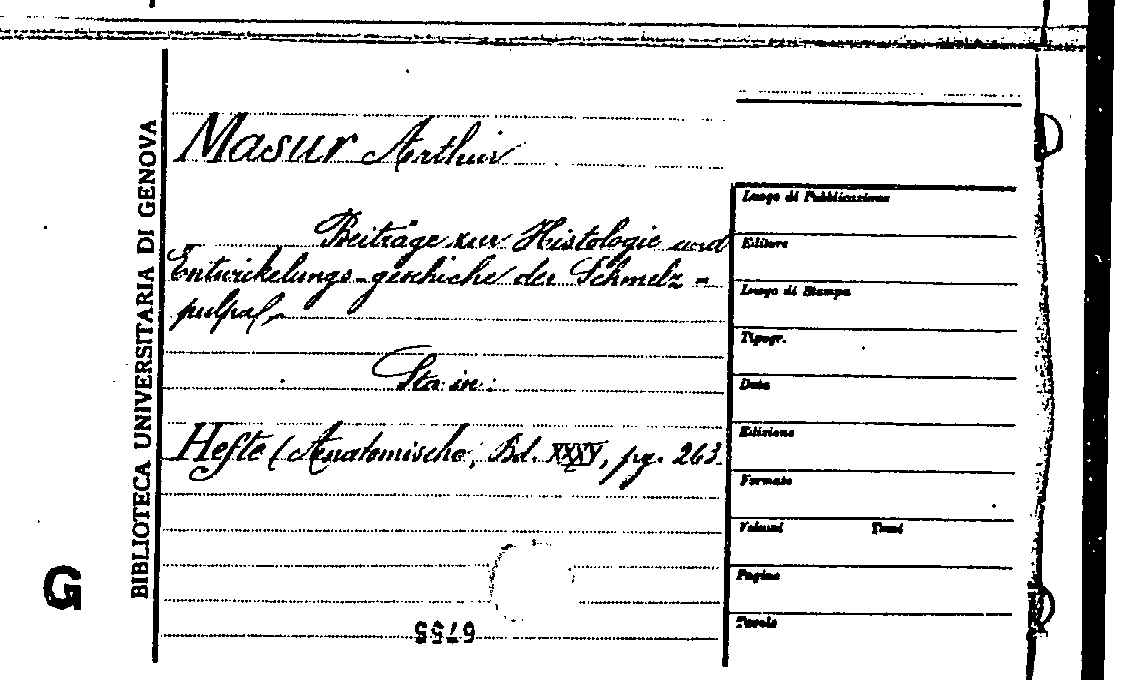 Masur Arthur
Beiträge zur Histologie und
Entwickelungs-geschiche der Schmelz-
pulpa.
Sta in:
Hefte (Anatomische, Bd. XXXV, pg. 263.
BIBLIOTECA UNIVERSITARIA DI GENOVA
G
Luogo di Pubblicazione
Editore
Luogo di Stampa
Tipogr.
Data
Edizione
Formato
Volumi Tomi
Pagine
Tavole